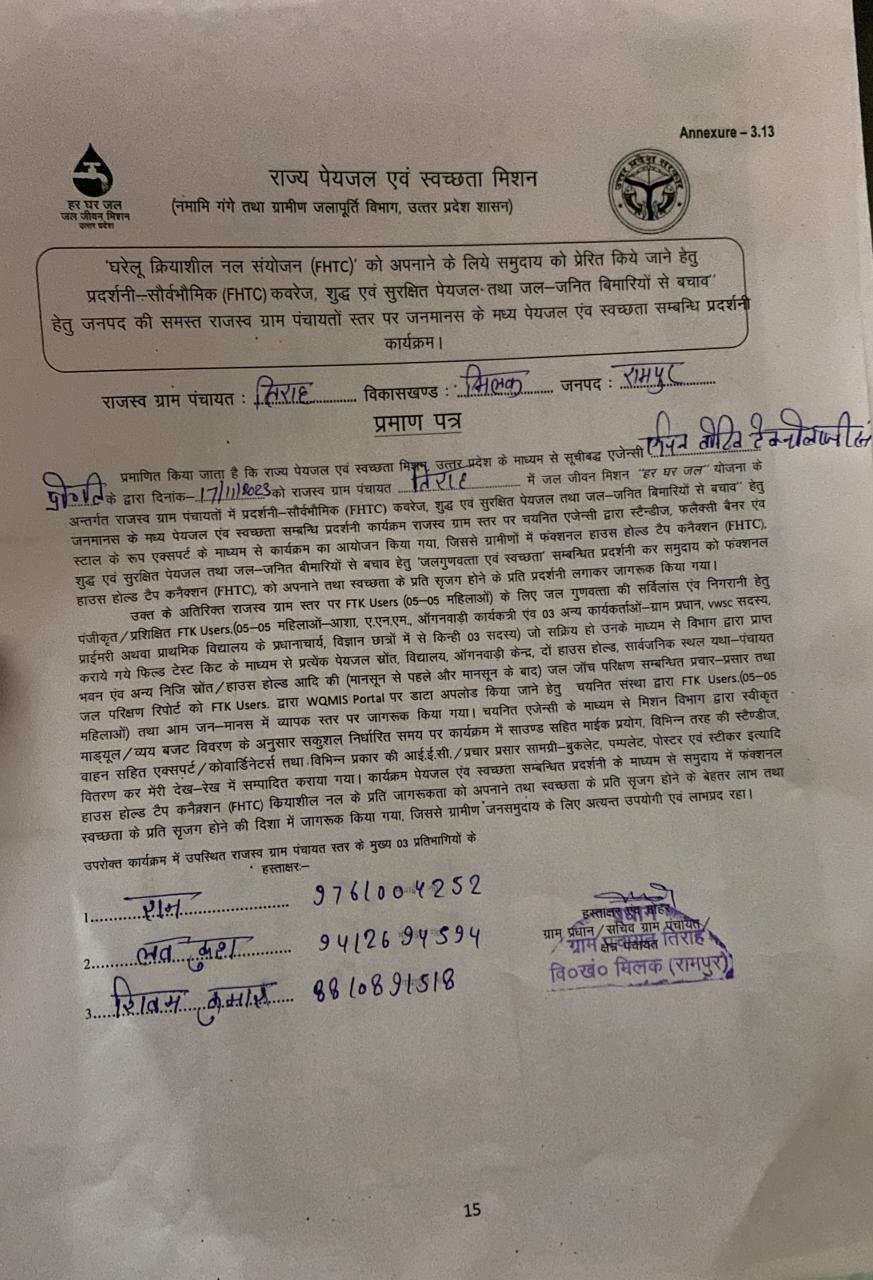 Annexure – 3.13
हर घर जल
जल जीवन मिशन
उत्तर प्रदेश
राज्य पेयजल एवं स्वच्छता मिशन
(नमामि गंगे तथा ग्रामीण जलापूर्ति विभाग, उत्तर प्रदेश शासन)
उत्तर प्रदेश सरकार
'घरेलू क्रियाशील नल संयोजन (FHTC)' को अपनाने के लिये समुदाय को प्रेरित किये जाने हेतु
प्रदर्शनी–सौर्वभौमिक (FHTC) कवरेज, शुद्ध एवं सुरक्षित पेयजल तथा जल–जनित बिमारियों से बचाव"
हेतु जनपद की समस्त राजस्व ग्राम पंचायतों स्तर पर जनमानस के मध्य पेयजल एंव स्वच्छता सम्बन्धि प्रदर्शनी
कार्यक्रम।
राजस्व ग्राम पंचायत : तिराह विकासखण्ड : मिलक जनपद : रामपुर
प्रमाण पत्र
प्रमाणित किया जाता है कि राज्य पेयजल एवं स्वच्छता मिशन, उत्तर प्रदेश के माध्यम से सूचीबद्ध एजेन्सी टेक्नोलॉजी
के द्वारा दिनांक–17/11/2023 को राजस्व ग्राम पंचायत तिराह में जल जीवन मिशन "हर घर जल" योजना के
अन्तर्गत राजस्व ग्राम पंचायतों में प्रदर्शनी–सौर्वभौमिक (FHTC) कवरेज, शुद्ध एवं सुरक्षित पेयजल तथा जल–जनित बिमारियों से बचाव" हेतु
जनमानस के मध्य पेयजल एंव स्वच्छता सम्बन्धि प्रदर्शनी कार्यक्रम राजस्व ग्राम स्तर पर चयनित एजेन्सी द्वारा स्टैन्डीज, फलैक्सी बैनर एंव
स्टाल के रूप एक्सपर्ट के माध्यम से कार्यक्रम का आयोजन किया गया, जिससे ग्रामीनों में फंक्शनल हाउस होल्ड टैप कनैक्शन (FHTC),
शुद्ध एवं सुरक्षित पेयजल तथा जल–जनित बीमारियों से बचाव हेतु 'जलगुणवत्ता एवं स्वच्छता' सम्बन्धित प्रदर्शनी कर समुदाय को फंक्शनल
हाउस होल्ड टैप कनैक्शन (FHTC), को अपनाने तथा स्वच्छता के प्रति सृजग होने के प्रति प्रदर्शनी लगाकर जागरूक किया गया।
उक्त के अतिरिक्त राजस्व ग्राम स्तर पर FTK Users (05–05 महिलाओं) के लिए जल गुणवत्ता की सर्विलांस एंव निगरानी हेतु
पंजीकृत/प्रशिक्षित FTK Users.(05–05 महिलाओं–आशा, ए.एन.एम., ऑगनवाड़ी कार्यकत्री एंव 03 अन्य कार्यकर्ताओं–ग्राम प्रधान, vwsc सदस्य,
प्राईमरी अथवा प्राथमिक विद्यालय के प्रधानाचार्य, विज्ञान छात्रों में से किन्ही 03 सदस्य) जो सक्रिय हो उनके माध्यम से विभाग द्वारा प्राप्त
कराये गये फिल्ड टेस्ट किट के माध्यम से प्रत्येक पेयजल स्रोंत, विद्यालय, ऑगनवाड़ी केन्द्र, दों हाउस होल्ड, सार्वजनिक स्थल यथा–पंचायत
भवन एंव अन्य निजि स्रोंत/हाउस होल्ड आदि की (मानसून से पहले और मानसून के बाद) जल जॉच परिक्षण सम्बन्धित प्रचार–प्रसार तथा
जल परिक्षण रिपोर्ट को FTK Users. द्वारा WQMIS Portal पर डाटा अपलोड किया जाने हेतु चयनित संस्था द्वारा FTK Users.(05–05
महिलाओं) तथा आम जन–मानस में व्यापक स्तर पर जागरूक किया गया। चयनित एजेन्सी के माध्यम से मिशन विभाग द्वारा स्वीकृत
माड्यूल/व्यय बजट विवरण के अनुसार सकुशल निर्धारित समय पर कार्यक्रम में साउण्ड सहित माईक प्रयोग, विभिन्न तरह की स्टैण्डीज,
वाहन सहित एक्सपर्ट/कोवार्डिनेटर्स तथा विभिन्न प्रकार की आई.ई.सी./प्रचार प्रसार सामग्री–बुकलेट, पम्पलेट, पोस्टर एवं स्टीकर इत्यादि
वितरण कर मेंरी देख–रेख में सम्पादित कराया गया। कार्यक्रम पेयजल एंव स्वच्छता सम्बन्धित प्रदर्शनी के माध्यम से समुदाय में फंक्शनल
हाउस होल्ड टैप कनैक्शन (FHTC) कियाशील नल के प्रति जागरूकता को अपनाने तथा स्वच्छता के प्रति सृजग होने के बेहतर लाभ तथा
स्वच्छता के प्रति सृजग होने की दिशा में जागरूक किया गया, जिससे ग्रामीण जनसमुदाय के लिए अत्यन्त उपयोगी एवं लाभप्रद रहा।
उपरोक्त कार्यक्रम में उपस्थित राजस्व ग्राम पंचायत स्तर के मुख्य 03 प्रतिभागियों के
हस्ताक्षरः–
1. राम 9761004252
2. लव कुश 9412694594
3. शिवम कुमार 8810891518
हस्ताक्षर एंव मोहर
ग्राम प्रधान/सचिव ग्राम पंचायत/
क्षेत्र पंचायत
प्रधान
ग्राम पंचायत तिराह
वि०खं० मिलक (रामपुर)
15